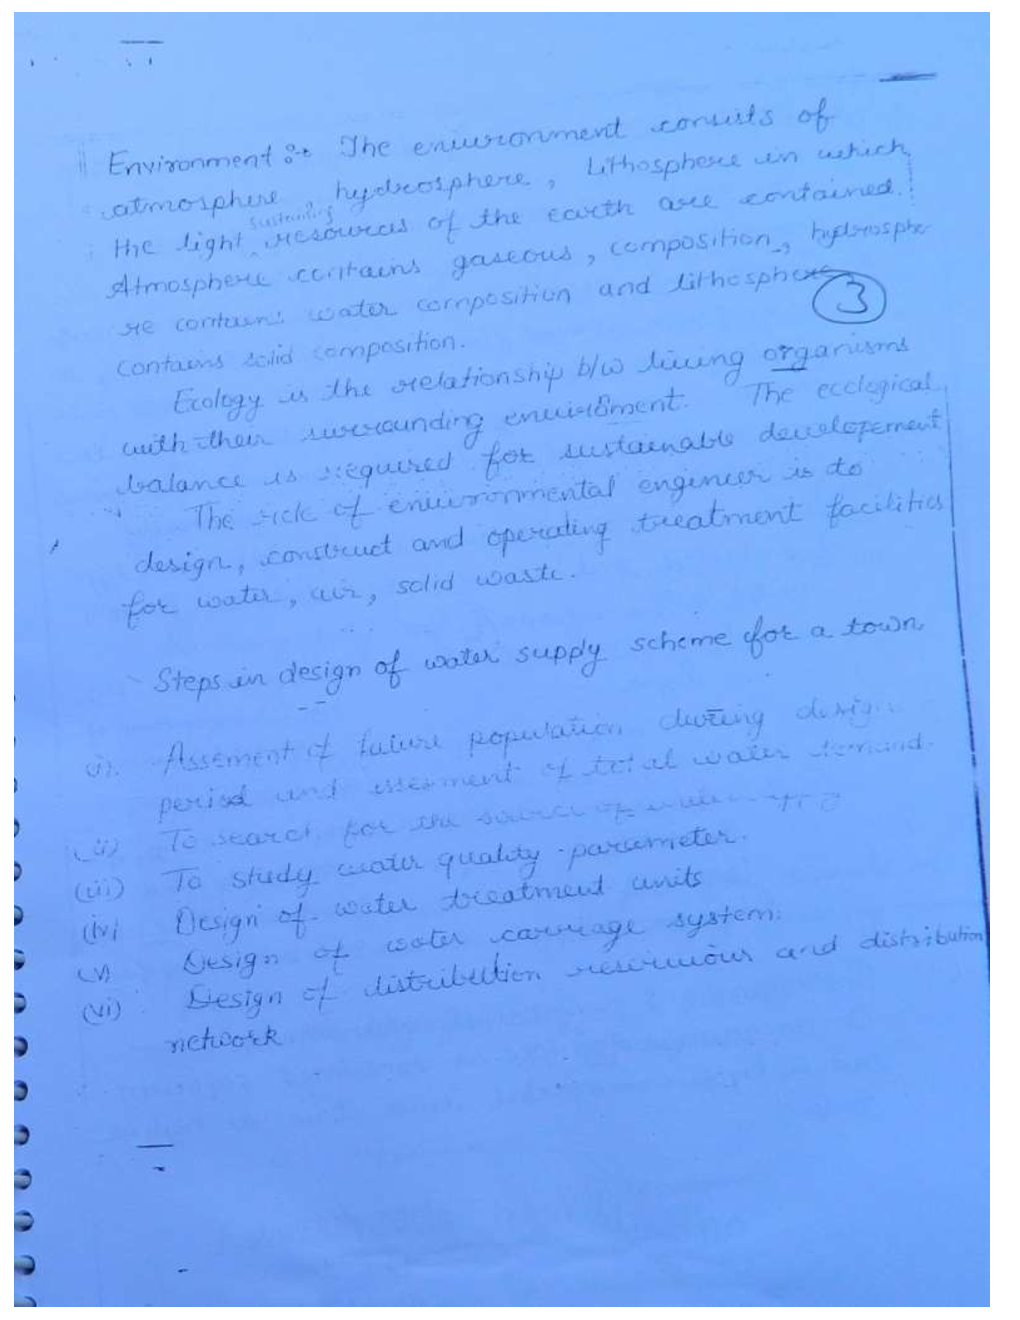 Environment :- The environment consists of
atmosphere, hydrosphere, Lithosphere in which
sustaining
the light resources of the earth are contained.
Atmosphere contains gaseous, composition, hydrosphe
re contains water composition and lithosphere
3
contains solid composition.
Ecology is the relationship b/w living organisms
with their surrounding enviroment. The ecological
balance is required for sustainable developement
The role of environmental engineer is to
design, construct and operating treatment facilities
for water, air, solid waste.
Steps in design of water supply scheme for a town
(i). Assement of future population during design
period and assesment of total water demand.
(ii) To search for the source of water
(iii) To study water quality parameter.
(iv) Design of water treatment units
(v) Design of water carriage system.
(vi) Design of distribution reservious and distribution
network